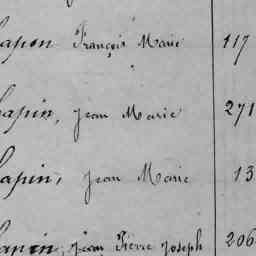 apon François Marie 117
apin, Jean Marie 271
apin, Jean Marie 13
apin, Jean Pierre Joseph 206